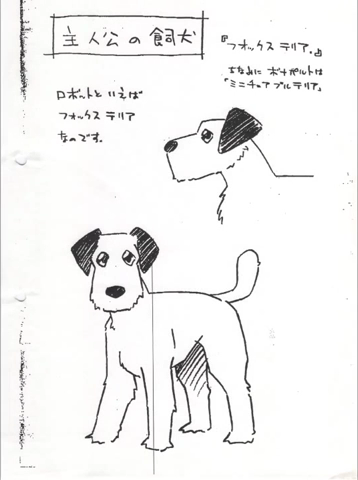 主人公の飼犬
『フォックス テリア。』
ちなみに ボナパルトは
「ミニチュア ブルテリア」
ロボットと いえば
フォックス テリア
なのです。